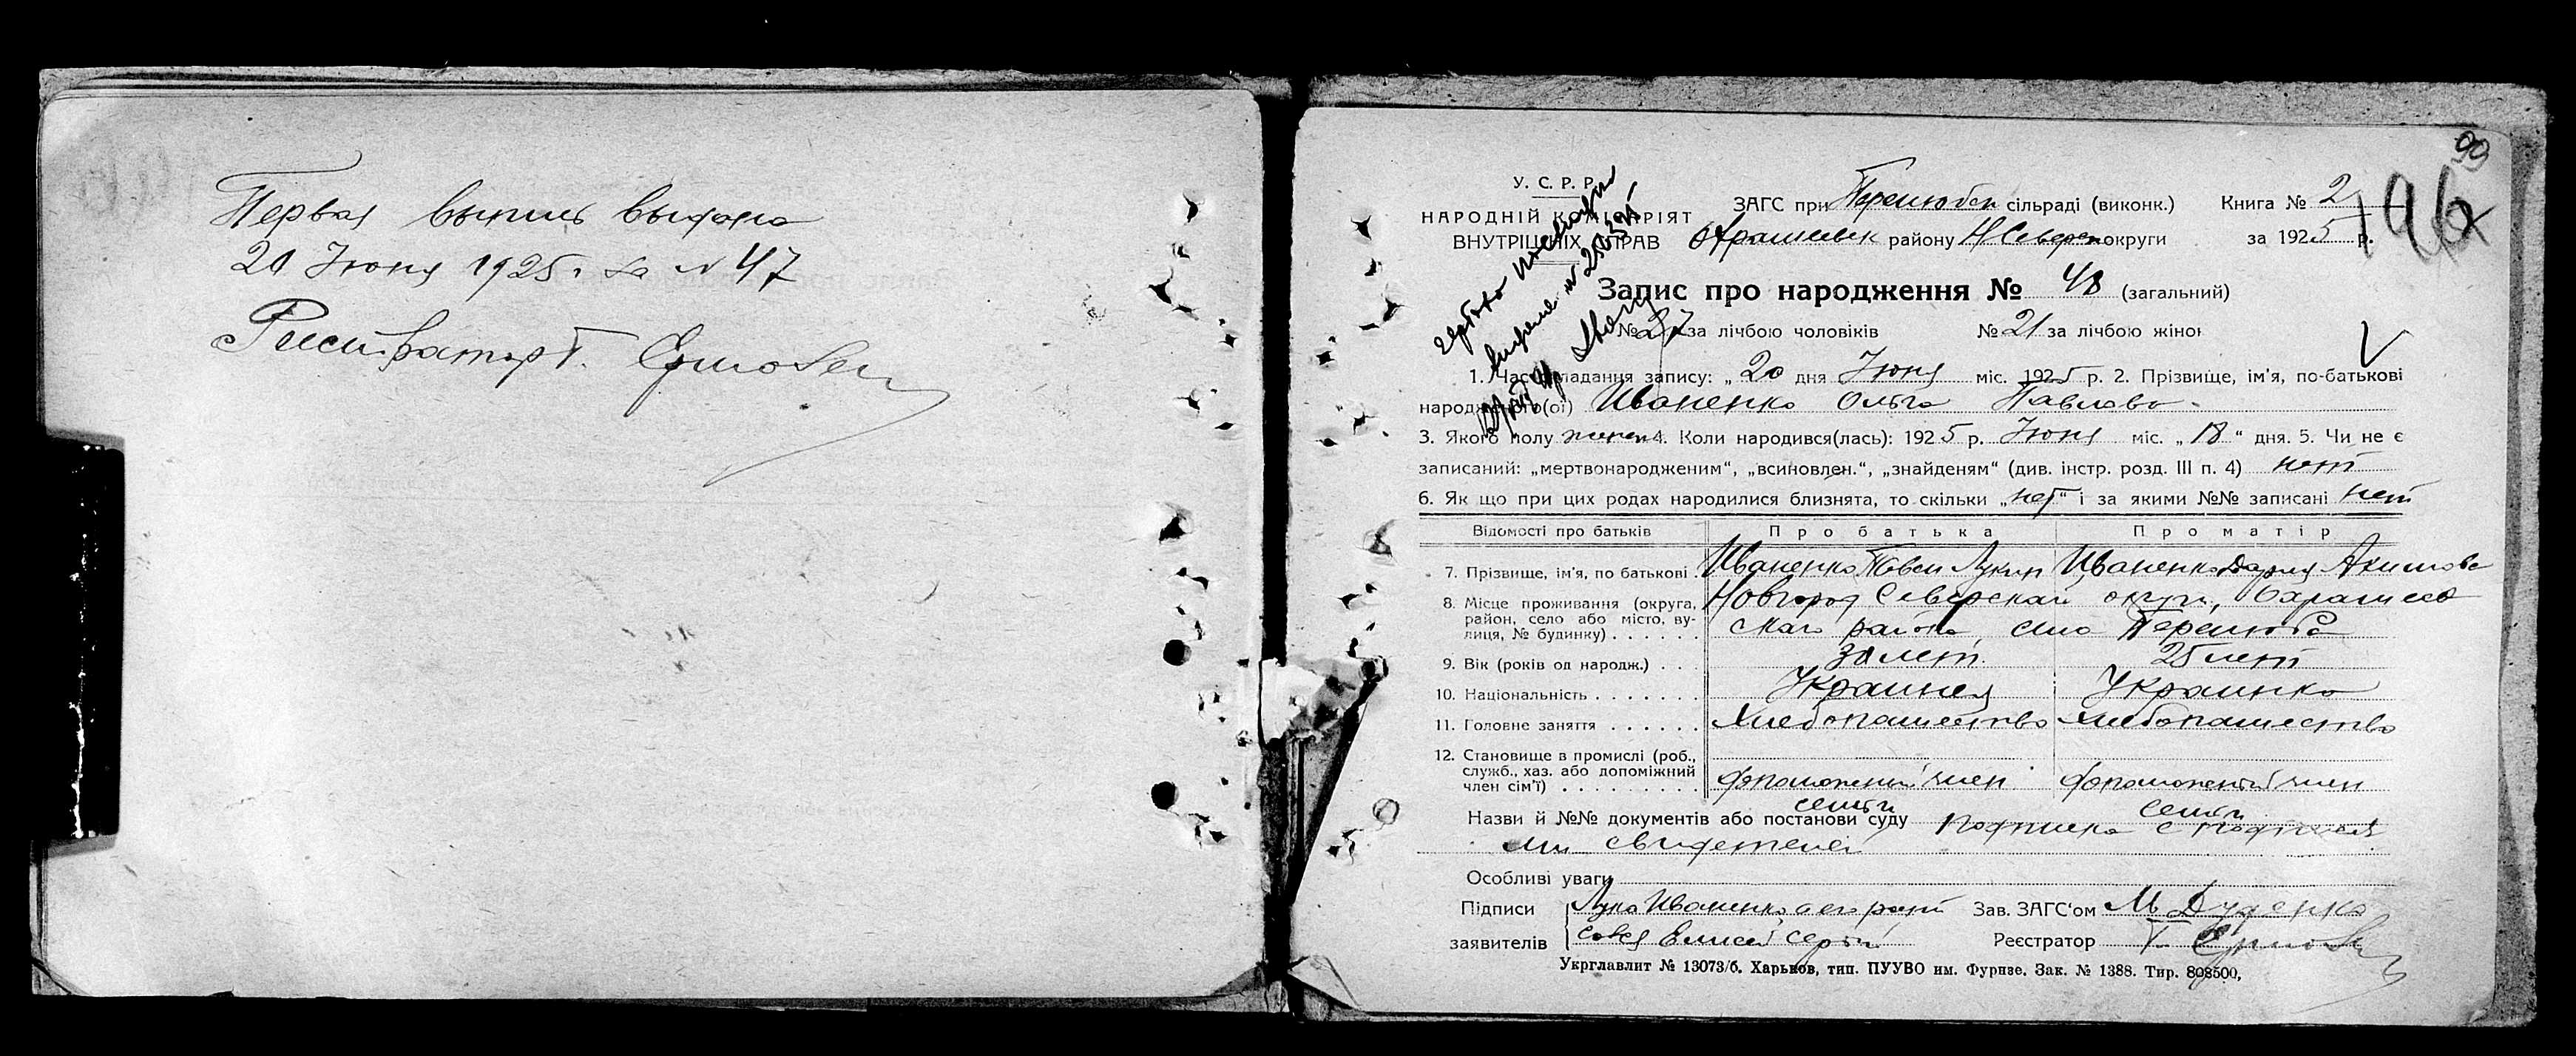 Первая выпись выдана
20 Июня 1925 г. за № 47
Регистратор Т.
90
196
У. С. Р. Р.
НАРОДНІЙ КОМІСАРІЯТ
ВНУТРІШНІХ СПРАВ
ЗАГС при Перелюбск сільраді (виконк.)
району Н Северск округи
Книга № 2
за 1925 р.
Запис про народження № 48 (загальний)
№ 27 за лічбою чоловіків № 21 за лічбою жінок
1. Час складання запису: „20 дня Июня міс. 1925 р. 2. Прізвище, ім'я, по-батькові
народженого(ої) Иваненко Ольга Павлова
3. Якого полу женск 4. Коли народився(лась): 1925 р. Июня міс. „18" дня. 5. Чи не є
записаний: „мертвонародженим", „всиновлен.", „знайденям" (див. інстр. розд. III п. 4) нет
6. Як що при цих родах народилися близнята, то скільки „нет" і за якими №№ записані нет
Відомості про батьків Про батька Про матір
7. Прізвище, ім'я, по батькові Иваненко Павел Лукин Иваненко Дарья Акимова
8. Місце проживання (округа, район, село або місто, вулиця, № будинку) Новгород Северской округи,
ского района, село Перелюб
9. Вік (років од народж.) 30 лет 25 лет
10. Національність Украинец Украинка
11. Головне заняття Хлебопашество Хлебопашество
12. Становище в промислі (роб., служб., хаз. або допоміжний член сім'ї) допоможный член семьи допоможный член семьи
Назви й №№ документів або постанови суду Подписка с подписа
ми свидетелей
Особливі уваги
Підписи Лука Иваненко а его
заявителів Елисей
Зав. ЗАГС'ом М Дуденко
Реєстратор Т.
Укрглавлит № 13073/б. Харьков, тип. ПУУВО им. Фурнзе. Зак. № 1388. Тир. 808500,